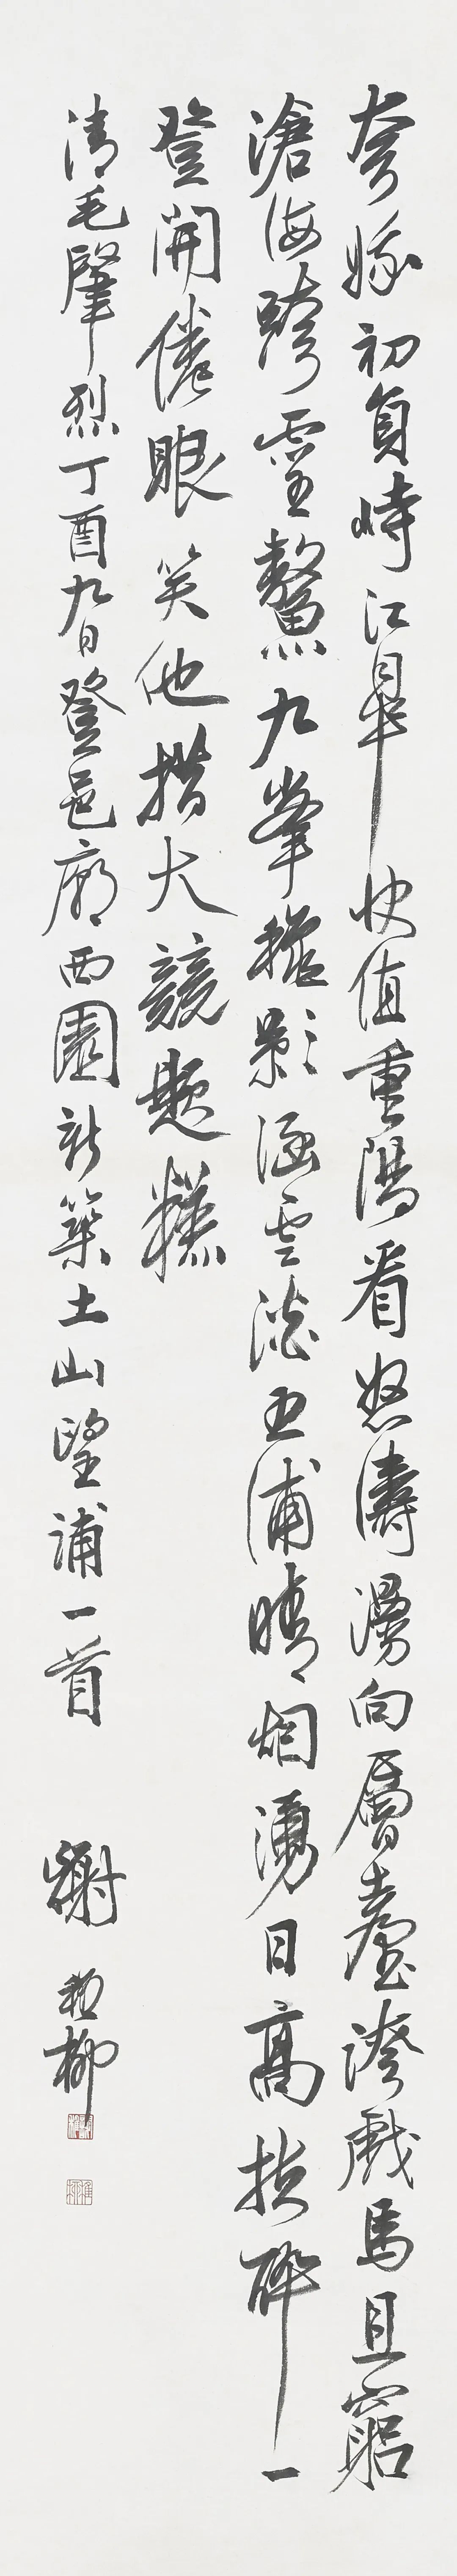 夸娥初負峙江皋快值重陽看怒濤漫向層臺誇戲馬且窮
滄海跨靈鰲九峯穠影涵雲淡五浦晴烟湧日高扶醉一
登開倦眼笑他措大競題糕
清毛肇烈丁酉九日登邑廟西園新築土山望浦一首 謝稚柳